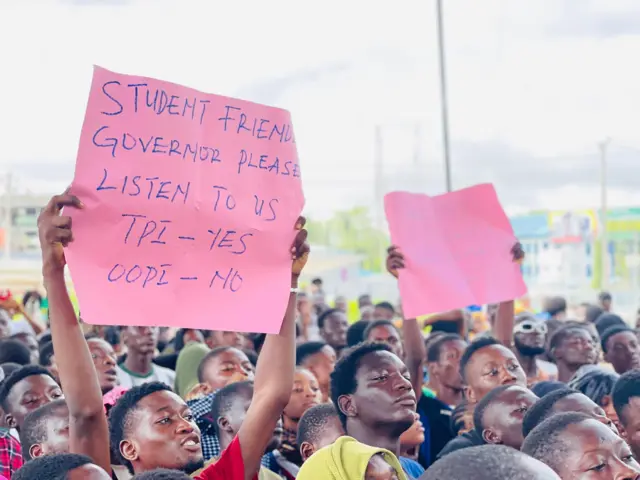 STUDENT FRIEND
GOVERNOR PLEASE
LISTEN TO US
TPI - YES
OOPI - NO